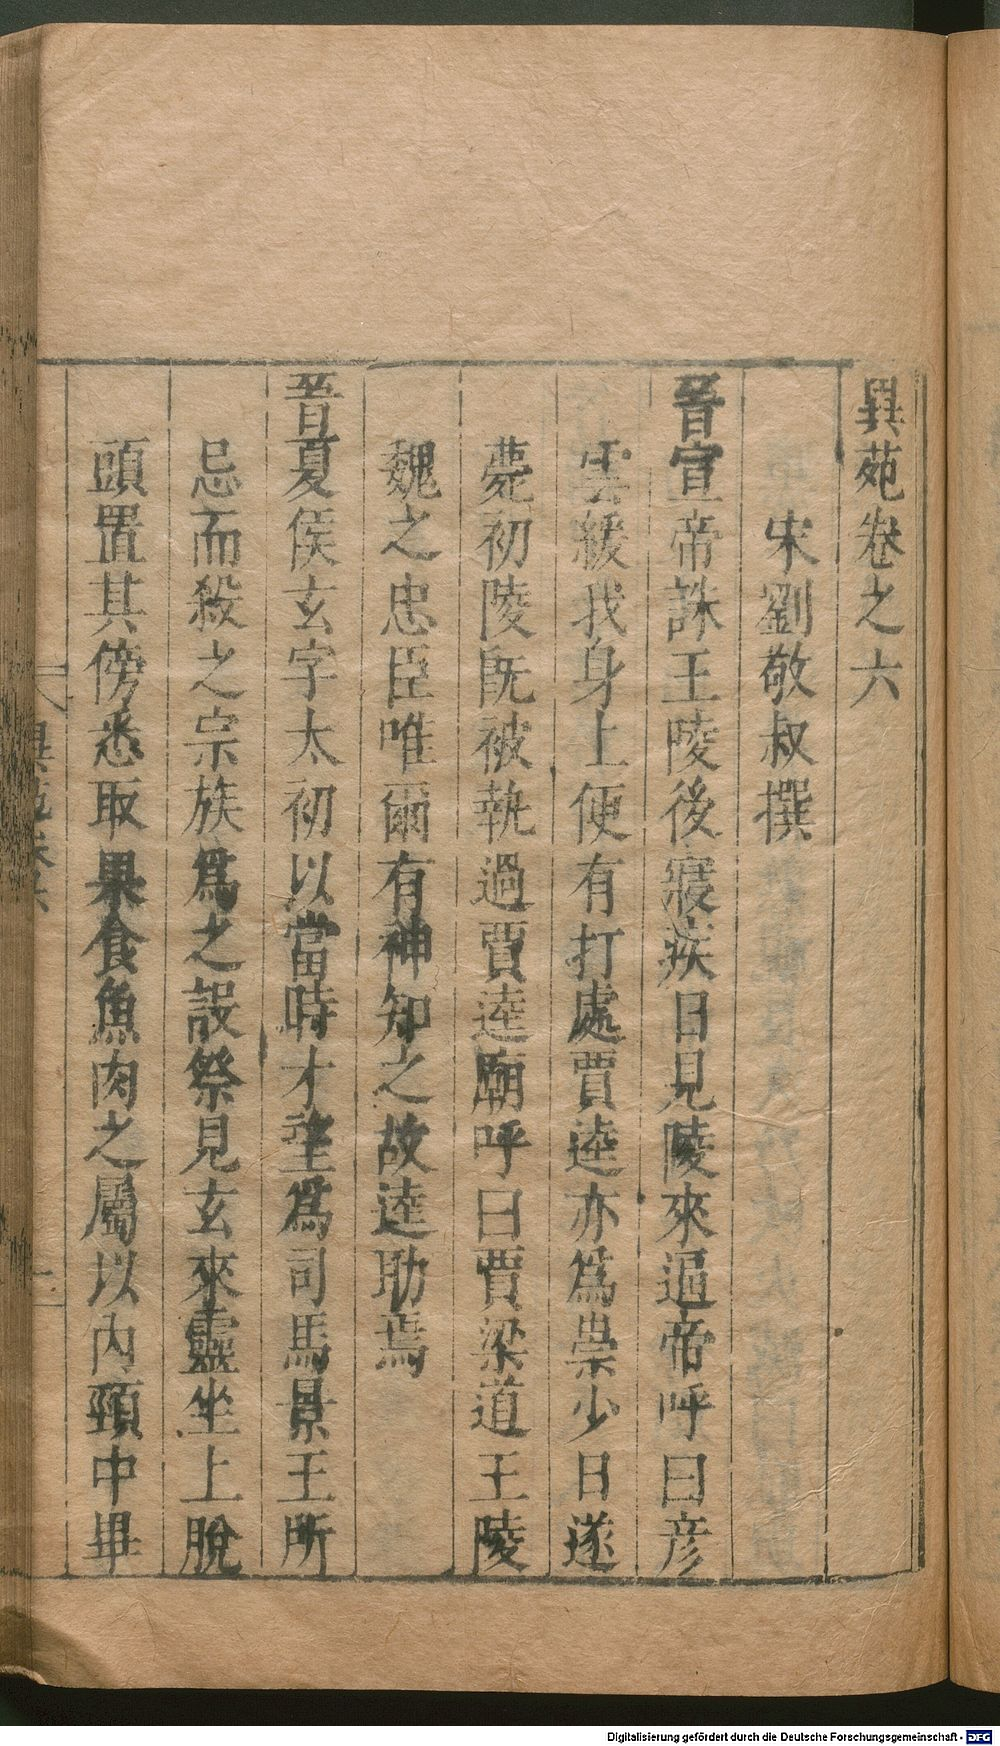 異苑卷之六
宋劉敬叔撰
晉宣帝誅王陵後寢疾日見陵來逼帝呼曰彦
雲緩我身上便有打處賈逵亦爲祟少日遂
薨初陵旣被執過賈逵廟呼曰賈梁道王陵
魏之忠臣唯爾有神知之故逵助焉
晉夏侯玄字太初以當時才望爲司馬景王所
忌而殺之宗族爲之設祭見玄來靈坐上脫
頭置其傍悉取果食魚肉之屬以內頸中畢
異苑卷六
Digitalisierung gefördert durch die Deutsche Forschungsgemeinschaft - DFG